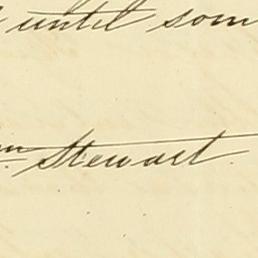 until som
Stewart.